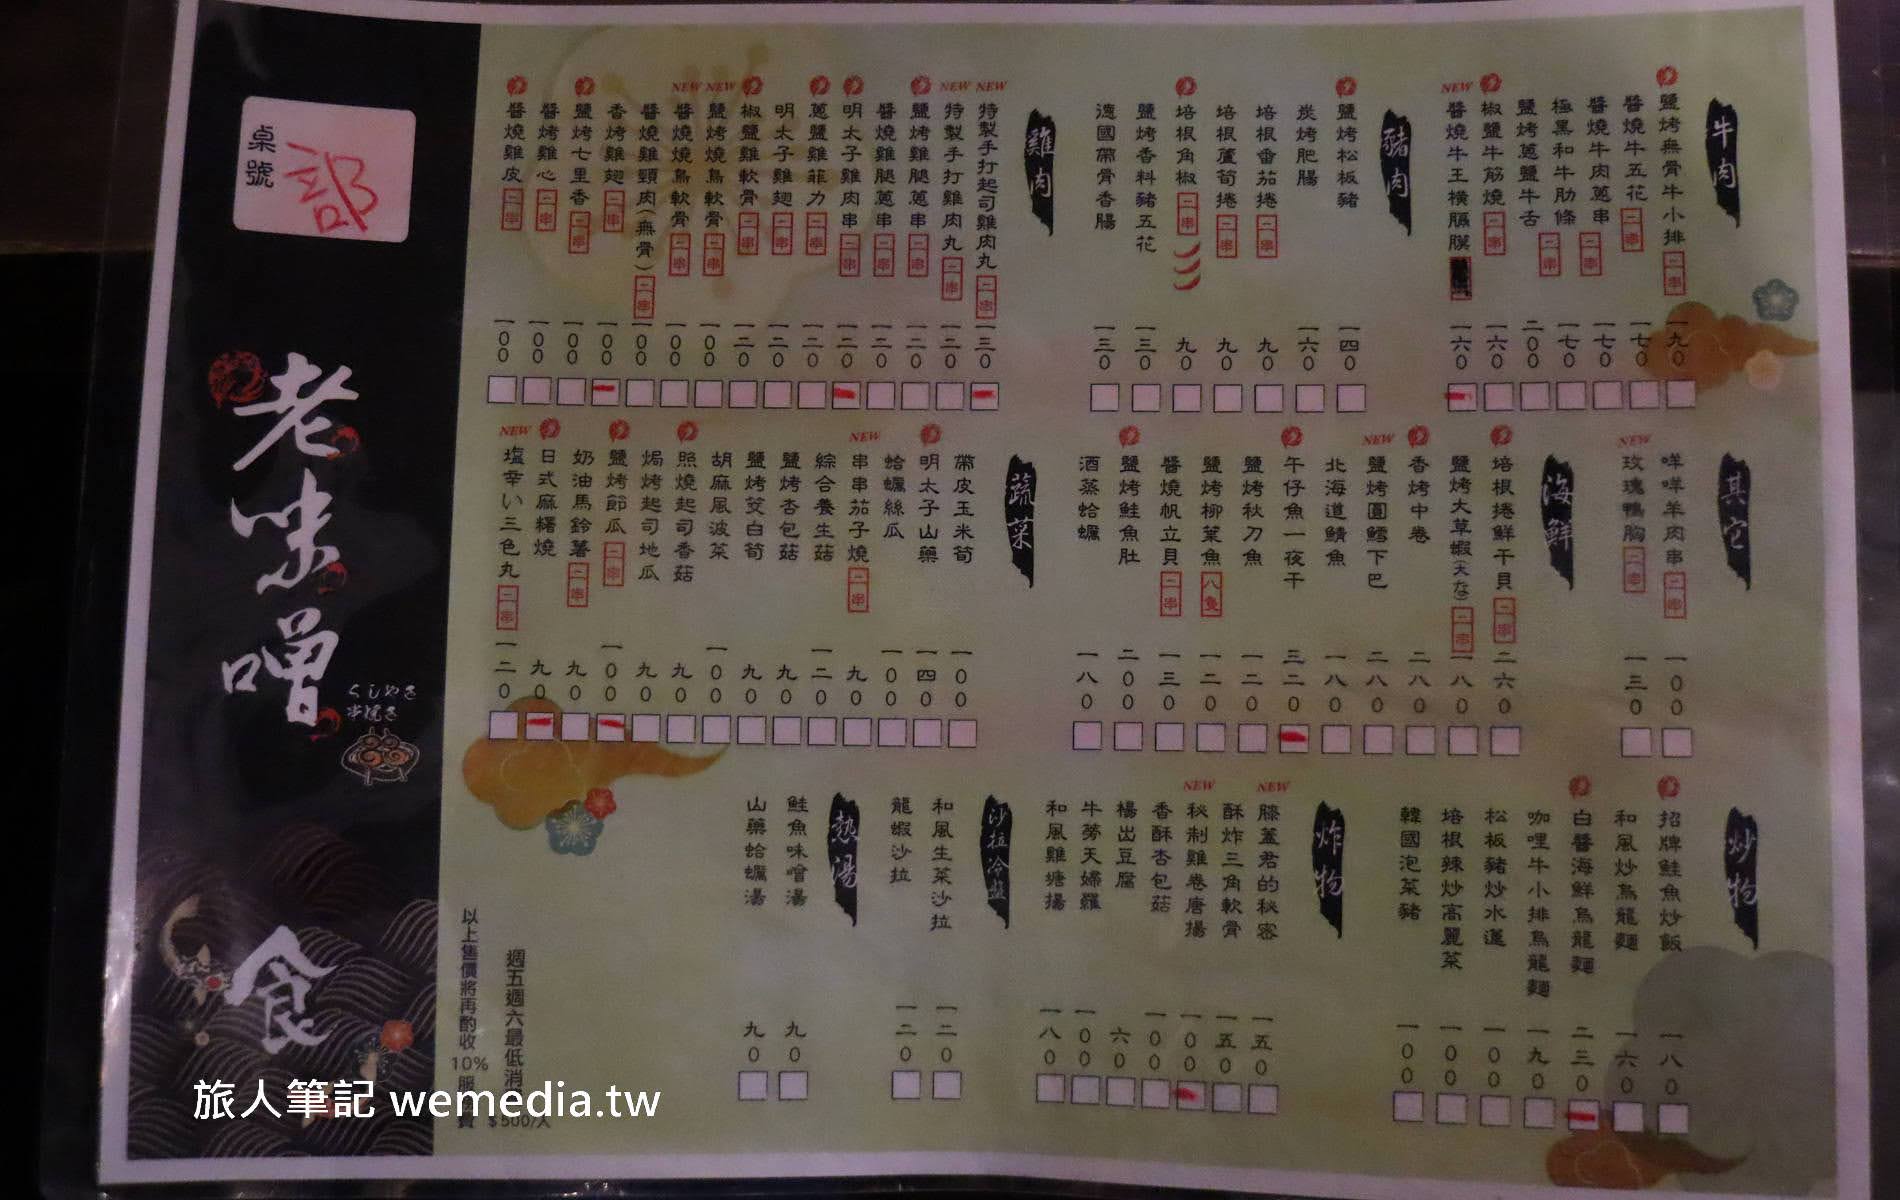 桌號
部
老味噌
くしやき
串焼き
食
牛肉
鹽烤無骨牛小排 二串 一九0
醬燒牛五花 二串 一七0
醬燒牛肉蔥串 二串 一七0
極黑和牛肋條 二串 一七0
鹽烤蔥鹽牛舌 二00
椒鹽牛筋燒 二串 一六0
NEW 醬燒牛王橫膈膜 一六0
豬肉
鹽烤松板豬 一四0
炭烤肥腸 一六0
培根番茄捲 二串 九0
培根蘆筍捲 二串 九0
培根角椒 二串 九0
鹽烤香料豬五花 一三0
德國帶骨香腸 一三0
雞肉
NEW 特製手打起司雞肉丸 二串 一三0
NEW 特製手打雞肉丸 二串 一二0
鹽烤雞腿蔥串 二串 一二0
醬燒雞腿蔥串 二串 一二0
明太子雞肉串 二串 一二0
蔥鹽雞菲力 二串 一二0
明太子雞翅 二串 一二0
椒鹽雞軟骨 二串 一二0
NEW 鹽烤燒鳥軟骨 二串 一00
NEW 醬燒燒鳥軟骨 二串 一00
醬燒雞頸肉(無骨) 二串 一00
香烤雞翅 二串 一00
鹽烤七里香 二串 一00
醬烤雞心 二串 一00
醬燒雞皮 二串 一00
其它
咩咩羊肉串 二串 一00
NEW 玫瑰鴨胸 二串 一三0
海鮮
培根捲鮮干貝 二串 二六0
鹽烤大草蝦(大な) 二串 一八0
香烤中卷 二八0
NEW 鹽烤圓鱈下巴 二八0
北海道鯖魚 一八0
午仔魚一夜干 三二0
鹽烤秋刀魚 一二0
鹽烤柳葉魚 八隻 一二0
醬燒帆立貝 二串 一三0
鹽烤鮭魚肚 二00
酒蒸蛤蠣 一八0
蔬菜
帶皮玉米筍 一00
明太子山藥 一四0
蛤蠣絲瓜 一00
NEW 串串茄子燒 二串 九0
綜合養生菇 一二0
鹽烤杏包菇 九0
鹽烤筊白筍 九0
胡麻風波菜 一00
照燒起司香菇 九0
焗烤起司地瓜 九0
鹽烤節瓜 二串 一00
奶油馬鈴薯 二串 九0
日式麻糬燒 九0
NEW 塩幸い三色丸 二串 一二0
炒物
招牌鮭魚炒飯 一八0
和風炒烏龍麵 一六0
白醬海鮮烏龍麵 二三0
咖哩牛小排烏龍麵 一九0
松板豬炒水蓮 一00
培根辣炒高麗菜 一00
韓國泡菜豬 一00
炸物
NEW 膝蓋君的秘密 一五0
酥炸三角軟骨 一五0
NEW 秘制雞卷唐揚 一00
香酥杏包菇 一00
楊出豆腐 六0
牛蒡天婦羅 一00
和風雞塘揚 一八0
沙拉冷盤
和風生菜沙拉 一二0
龍蝦沙拉 一二0
熱湯
鮭魚味噌湯 九0
山藥蛤蠣湯 九0
週五週六最低消 $500/人
以上售價將再酌收10%服 費
旅人筆記 wemedia.tw